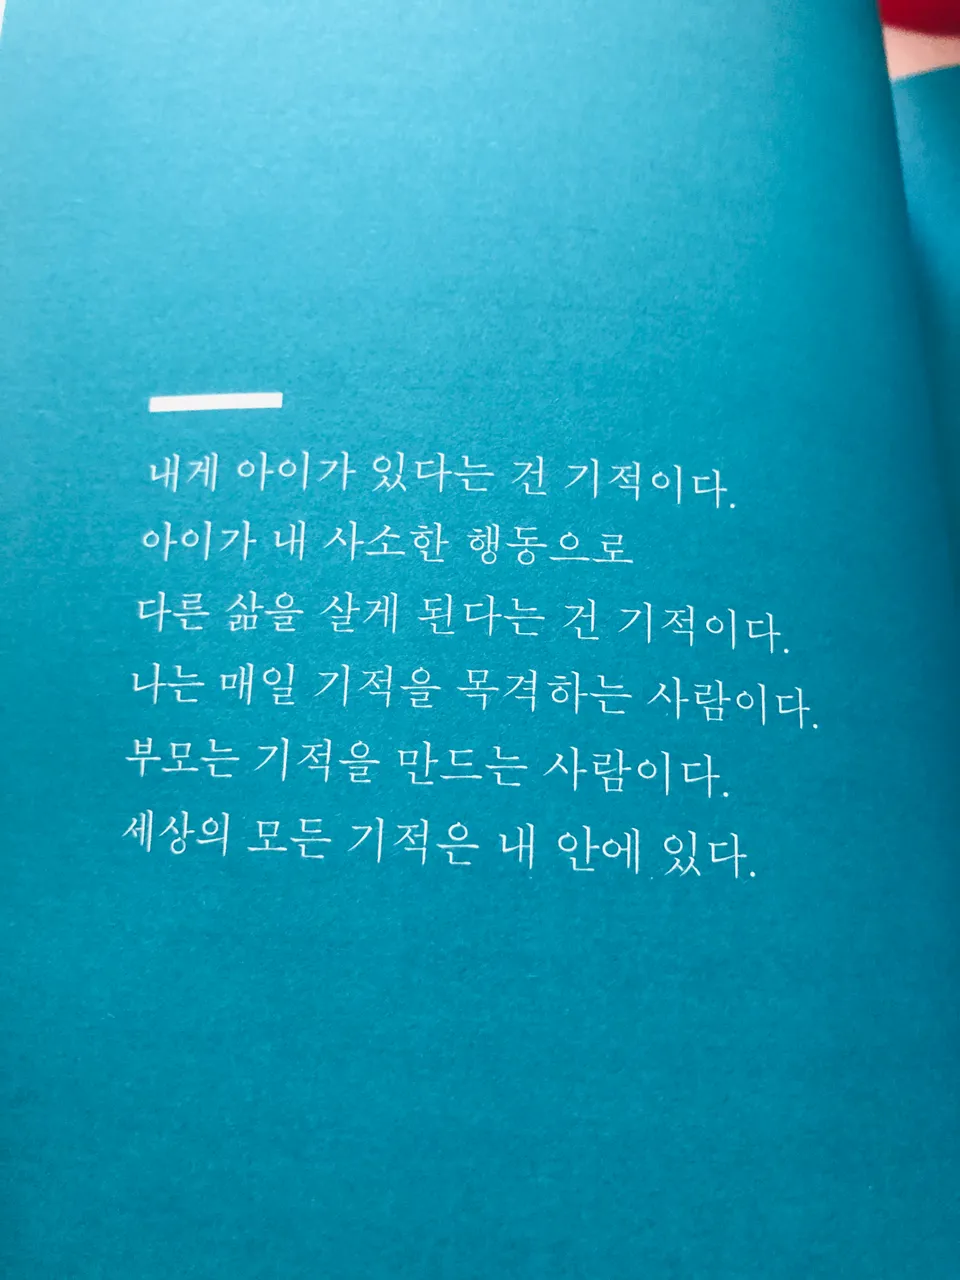 내게 아이가 있다는 건 기적이다.
아이가 내 사소한 행동으로
다른 삶을 살게 된다는 건 기적이다.
나는 매일 기적을 목격하는 사람이다.
부모는 기적을 만드는 사람이다.
세상의 모든 기적은 내 안에 있다.